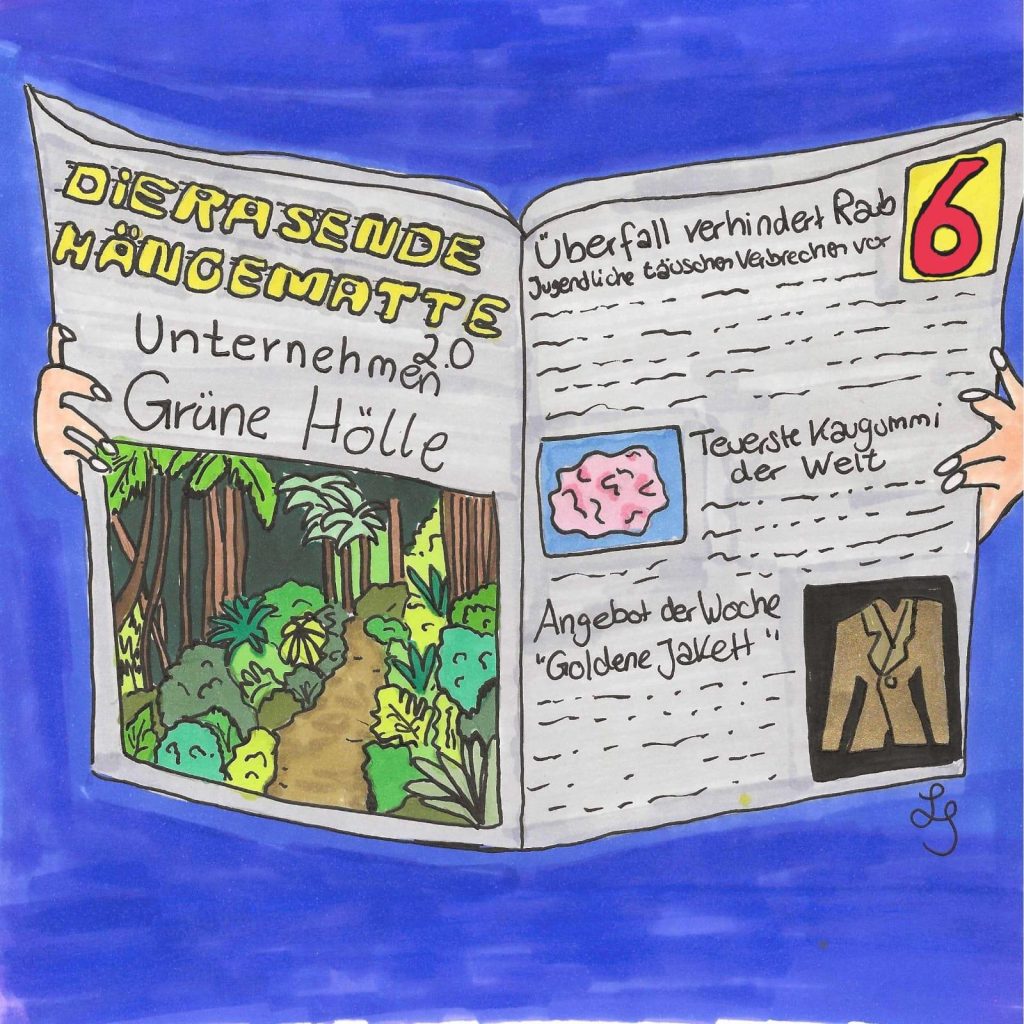 DiERASENDE
HÄNGEMATTE
Unternehmen 2.0
Grüne Hölle
6
Überfall verhindert Raub
Jugendliche täuschen Verbrechen vor
Teuerste Kaugummi
der Welt
Angebot der Woche
"Goldene Jakett"
LG